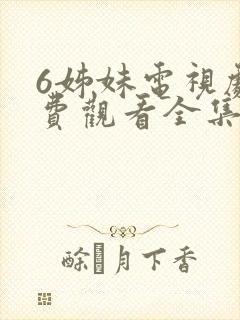 6姊妹電視劇
費觀看全集
酴月下香